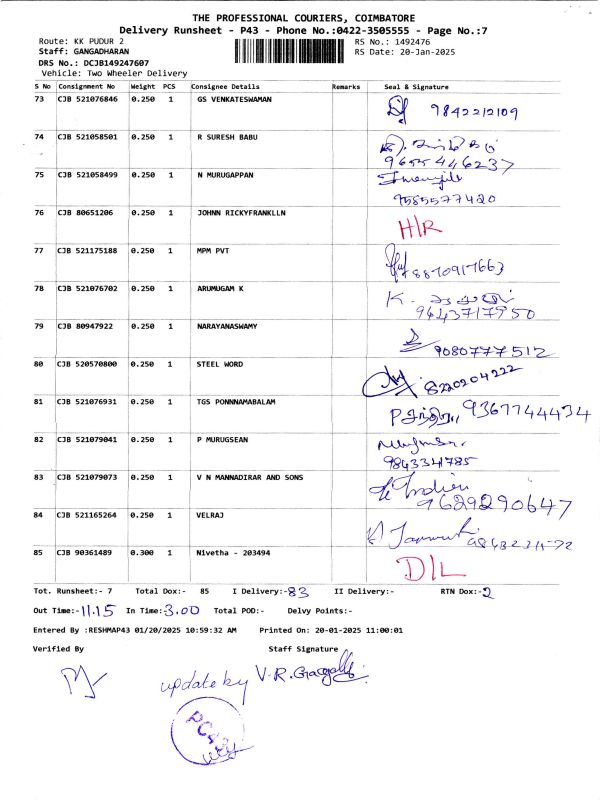 THE PROFESSIONAL COURIERS, COIMBATORE
Delivery Runsheet - P43 - Phone No.:0422-3505555 - Page No.:7
Route: KK PUDUR 2 RS No.: 1492476
Staff: GANGADHARAN RS Date: 20-Jan-2025
DRS No.: DCJB149247607
Vehicle: Two Wheeler Delivery
S No Consignment No Weight PCS Consignee Details Remarks Seal & Signature
73 CJB 521076846 0.250 1 GS VENKATESWAMAN 9842212109
74 CJB 521058501 0.250 1 R SURESH BABU
9655446237
75 CJB 521058499 0.250 1 N MURUGAPPAN
9585577420
76 CJB 80651206 0.250 1 JOHNN RICKYFRANKLLN H/R
77 CJB 521175188 0.250 1 MPM PVT 8870917663
78 CJB 521076702 0.250 1 ARUMUGAM K K.
9443717950
79 CJB 80947922 0.250 1 NARAYANASWAMY
9080777512
80 CJB 520570800 0.250 1 STEEL WORD 8220204222
81 CJB 521076931 0.250 1 TGS PONNNAMABALAM 9367744434
82 CJB 521079041 0.250 1 P MURUGSEAN
9843341785
83 CJB 521079073 0.250 1 V N MANNADIRAR AND SONS
9629290647
84 CJB 521165264 0.250 1 VELRAJ
85 CJB 90361489 0.300 1 Nivetha - 203494 D/L
Tot. Runsheet:- 7 Total Dox:- 85 I Delivery:- 83 II Delivery:- RTN Dox:- 2
Out Time:- 11.15 In Time:- 3.00 Total POD:- Delvy Points:-
Entered By :RESHMAP43 01/20/2025 10:59:32 AM Printed On: 20-01-2025 11:00:01
Verified By Staff Signature
update by V.R.